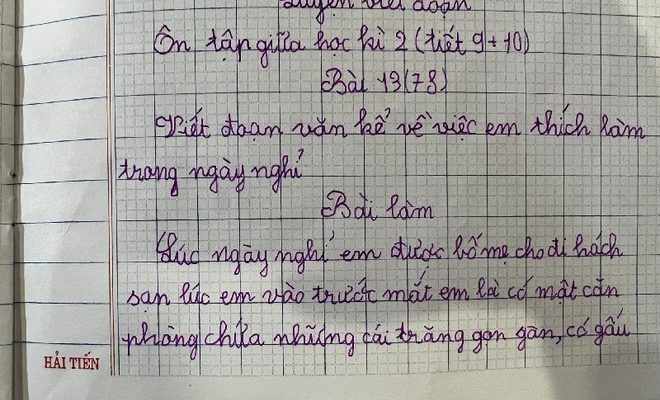 Luyện viết đoạn
Ôn tập giữa học kì 2 (tiết 9+10)
Bài 13(78)
Viết đoạn văn kể về việc em thích làm
trong ngày nghỉ
Bài làm
Lúc ngày nghỉ em được bố mẹ cho đi hách
sạn lúc em vào trước mắt em là có một căn
phòng chứa những cái trăng gọn gàn, có gấu
HẢI TIẾN